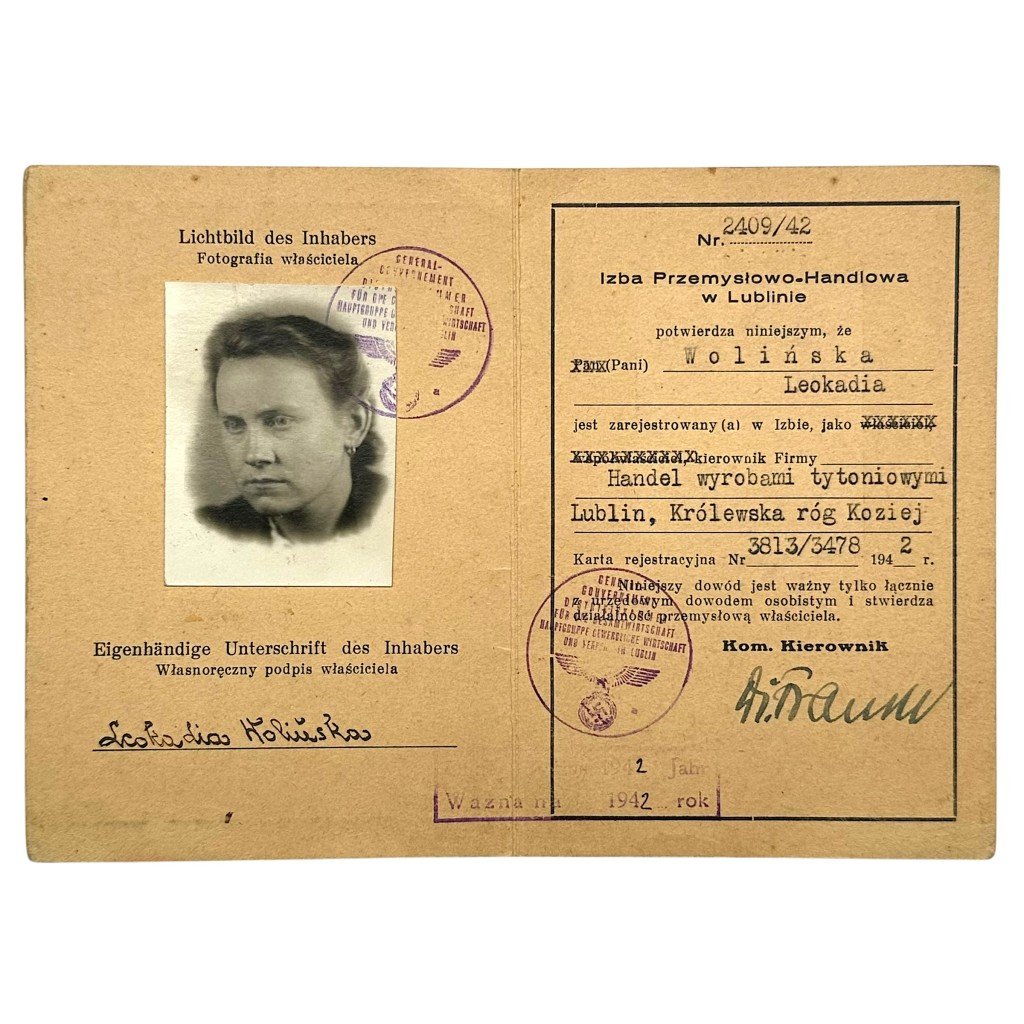 Lichtbild des Inhabers
Fotografia właściciela
GENERAL-
GOUVERNEMENT
FÜR DIE
HAUPTGRUPPE WIRTSCHAFT
UND LUBLIN
Eigenhändige Unterschrift des Inhabers
Własnoręczny podpis właściciela
Leokadia Wolińska
Nr. 2409/42
Izba Przemysłowo-Handlowa
w Lublinie
potwierdza niniejszym, że
Pan (Pani) Wolińska
Leokadia
jest zarejestrowany(a) w Izbie, jako właściciel,
współwłaściciel, kierownik Firmy
Handel wyrobami tytoniowymi
Lublin, Królewska róg Koziej
Karta rejestracyjna Nr 3813/3478 1942 r.
Niniejszy dowód jest ważny tylko łącznie
z urzędowym dowodem osobistym i stwierdza
działalność przemysłową właściciela.
Kom. Kierownik
GENERAL-
GOUVERNEMENT
FÜR DIE GESAMTWIRTSCHAFT
HAUPTGRUPPE GEWERBLICHE WIRTSCHAFT
UND LUBLIN
1942 Jahr
Ważna na 1942 rok